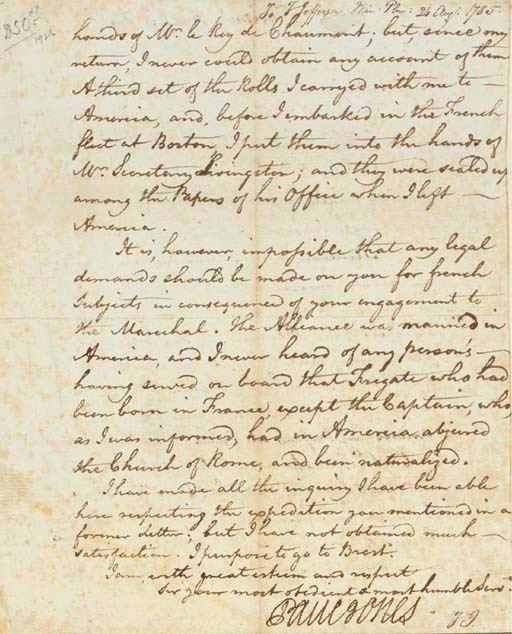 To T. Jefferson, Min: Plen: 24 Augt. 1785.
hands of Mr. le Rey de Chaumont; but, since my
return, I never could obtain any account of them
A third set of the Rolls I carryed with me to —
America, and, before I embarked in the French
fleet at Boston, I put them into the hands of
Mr. Secretary Livingston; and they were sealed up
among the Papers of his Office when I left —
America.
It is, however, impossible that any legal
demands should be made on you for french
Subjects in consequence of your engagement to
the Marechal. The Alliance was manned in
America, and I never heard of any person's —
having served on board that Fregate who had
been born in France, except the Captain, who,
as I was informed, had in America abjured
the Church of Rome, and been naturalized.
I have made all the inquiry I have been able
here respecting the expedition you mentioned in a
former letter; but I have not obtained much —
satisfaction. I purpose to go to Brest.
I am, with great esteem and respect
Sir your most obedient & most humble Servt.
Paul Jones